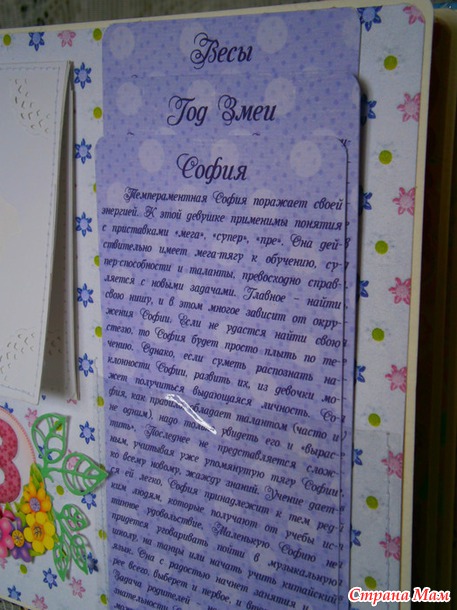 Весы
Год Змеи
София
Темпераментная София поражает своей
энергией. К этой девушке применимы понятия
с приставками «мега», «супер», «пре». Она дей-
ствительно имеет мега-тягу к обучению, су-
пер-способности и таланты, превосходно справ-
ляется с новыми задачами. Главное – найти
свою нишу, и в этом многое зависит от окру-
жения Софии. Если не удастся найти свою
стезю, то София будет просто плыть по те-
чению. Однако, если суметь распознать на-
клонности Софии, развить их, из девочки мо-
жет получиться выдающаяся личность. Со-
фия, как правило, обладает талантом (часто и
не одним), надо только увидеть его и «вырас-
тить». Последнее не представляется слож-
ным, учитывая уже упомянутую тягу Софии
ко всему новому, жажду знаний. Учение дает-
ся ей легко, София принадлежит к тем ред-
ким людям, которые получают от учебы ис-
тинное удовольствие. Маленькую Софию не
придется уговаривать пойти в музыкальную
школу, на танцы или начать учить китайский
язык. Она с радостью начнет занятия и, ско-
рее всего, выберет и первое, и второе
Задача родителей
знательности
Страна Мам